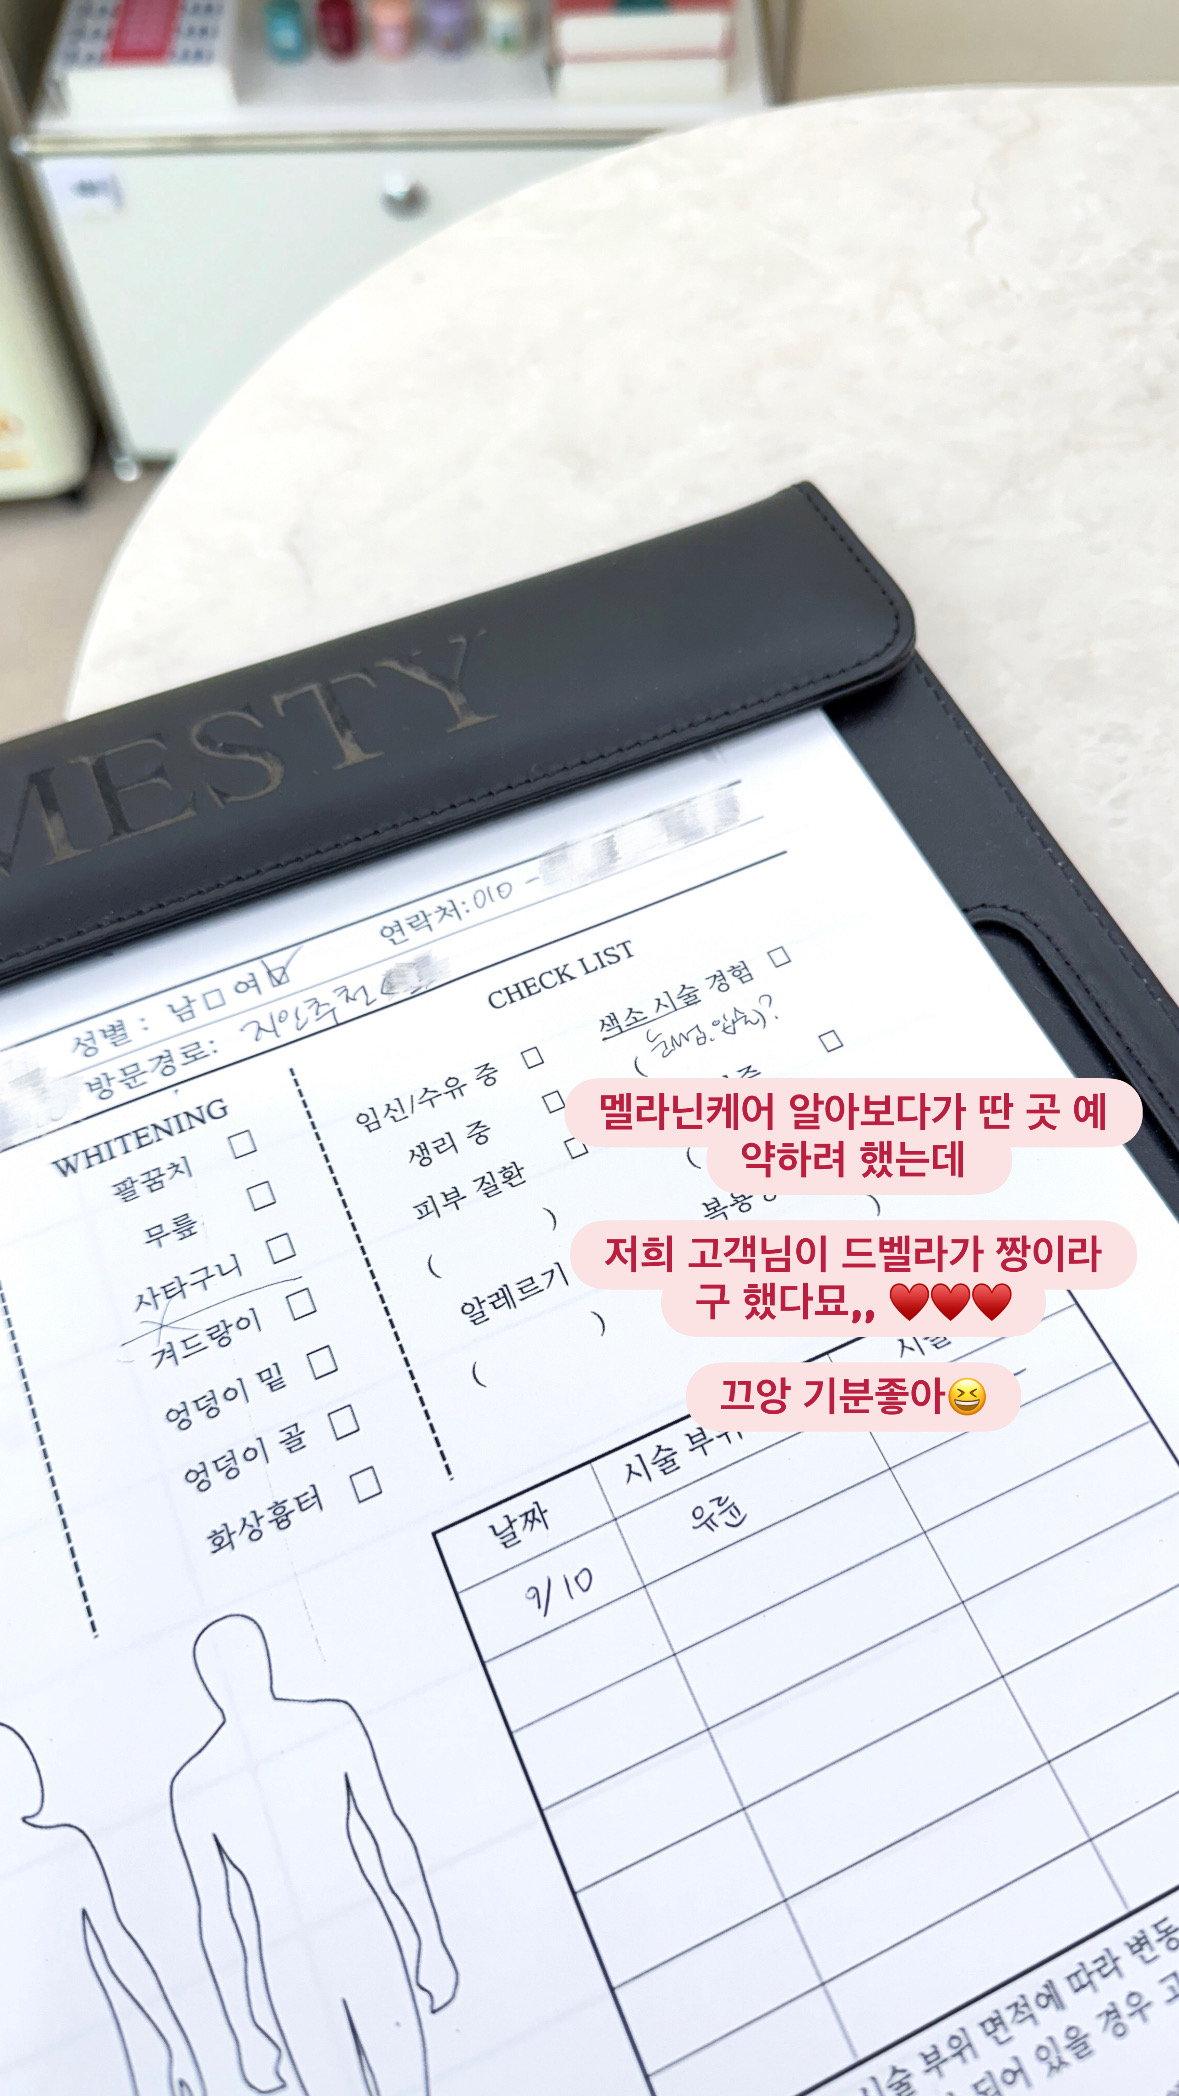 MESTY
연락처: 010 -
성별 : 남 □ 여 ☑
방문경로: 지인추천
CHECK LIST
WHITENING
팔꿈치 □
무릎 □
사타구니 □
겨드랑이 □
엉덩이 밑 □
엉덩이 골 □
화상흉터 □
임신/수유 중 □
생리 중 □
피부 질환 □
( )
알레르기
( )
색소 시술 경험 □
(눈썹, 입술)?
멜라닌케어 알아보다가 딴 곳 예
약하려 했는데
저희 고객님이 드벨라가 짱이라
구 했다묘,, ♥️♥️♥️
끄앙 기분좋아😆
날짜 시술 부위 시술
9/10 유륜
시술 부위 면적에 따라 변동
되어 있을 경우